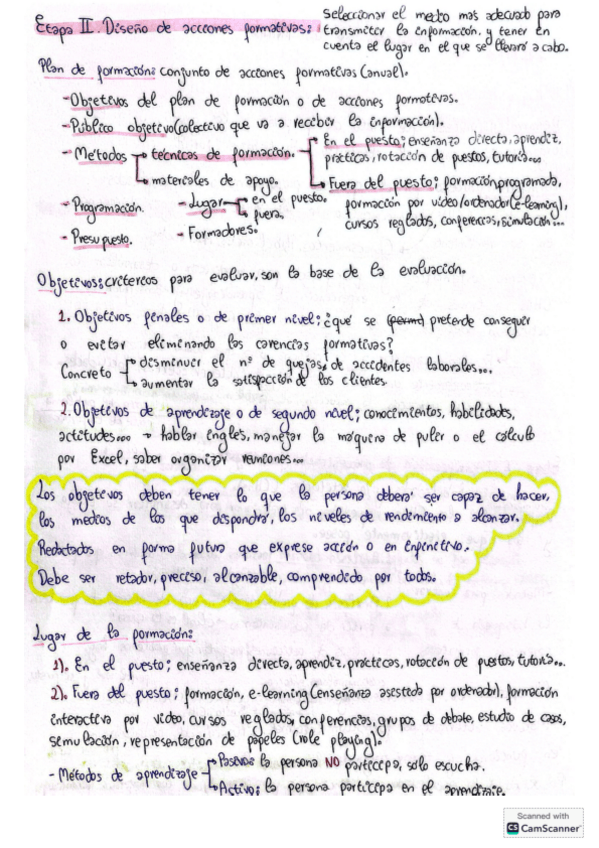 Etapa II. Diseño de acciones formativas: Seleccionar el medio mas adecuado para
transmitir la información, y tener en
cuenta el lugar en el que se llevará a cabo.
Plan de formación: conjunto de acciones formativas (anual).
- Objetivos del plan de formación o de acciones formativas.
- Público objetivo (colectivo que va a recibir la información).
- Métodos → técnicas de formación. → En el puesto; enseñanza directa, aprendiz,
prácticas, rotación de puestos, tutoría...
→ materiales de apoyo. → Fuera del puesto; formación programada,
- Programación. - Lugar → en el puesto. formación por video/ordenador (e-learning),
→ fuera. cursos reglados, conferencias, simulación...
- Presupuesto. - Formadores.
Objetivos: criterios para evaluar, son la base de la evaluación.
1. Objetivos finales o de primer nivel; ¿qué se (permi) pretende conseguir
o evitar eliminando las carencias formativas?
Concreto → disminuir el nº de quejas, de accidentes laborales...
→ aumentar la satisfacción de los clientes.
2. Objetivos de aprendizaje o de segundo nivel; conocimientos, habilidades,
actitudes... → hablar inglés, manejar la máquina de pulir o el cálculo
por Excel, saber organizar reuniones...
Los objetivos deben tener lo que la persona deberá ser capaz de hacer,
los medios de los que dispondrá, los niveles de rendimiento a alcanzar.
Redactados en forma futura que exprese acción o en infinitivo.
Debe ser retador, preciso, alcanzable, comprendido por todos.
Lugar de la formación:
1). En el puesto; enseñanza directa, aprendiz, prácticas, rotación de puestos, tutoría...
2). Fuera del puesto; formación, e-learning (enseñanza asistida por ordenador), formación
interactiva por video, cursos reglados, conferencias, grupos de debate, estudio de casos,
simulación, representación de papeles (role playing).
- Métodos de aprendizaje → Pasivo: la persona NO participa, solo escucha.
→ Activo: la persona participa en el aprendizaje.
Scanned with
CS CamScanner